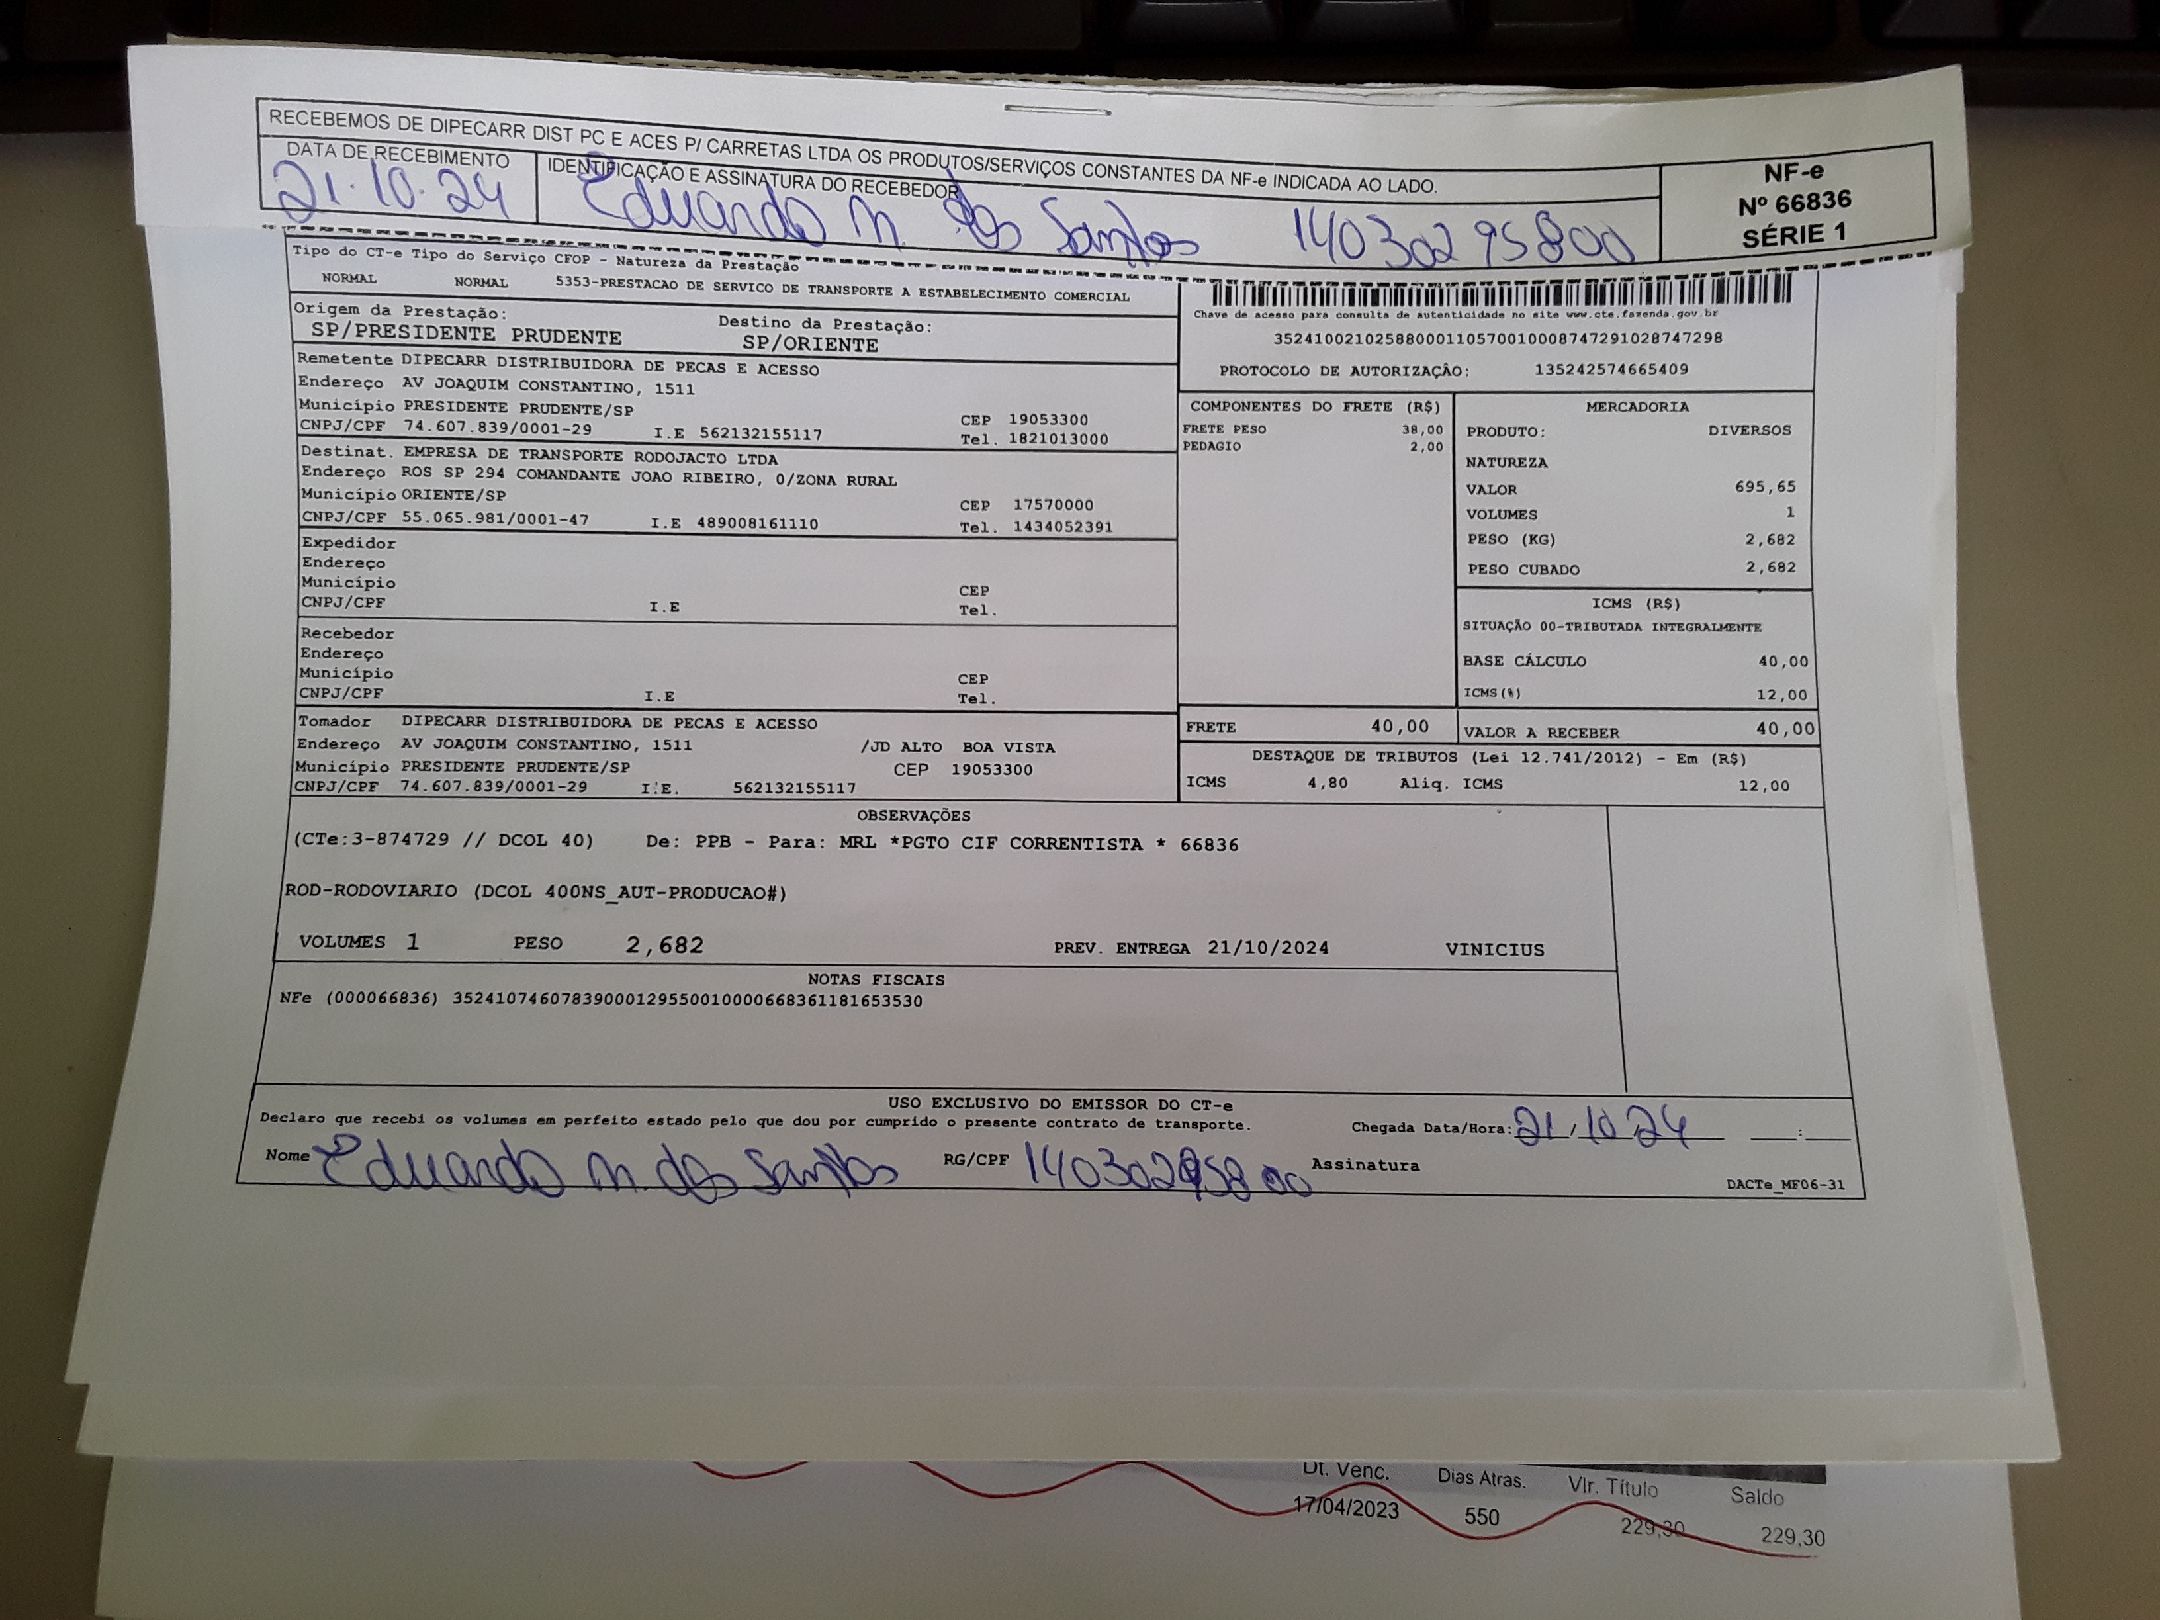 RECEBEMOS DE DIPECARR DIST PC E ACES P/ CARRETAS LTDA OS PRODUTOS/SERVIÇOS CONSTANTES DA NF-e INDICADA AO LADO.
DATA DE RECEBIMENTO IDENTIFICAÇÃO E ASSINATURA DO RECEBEDOR
21.10.24 Eduardo m. dos Santos 14030295800
NF-e
Nº 66836
SÉRIE 1
Tipo do CT-e Tipo do Serviço CFOP - Natureza da Prestação
NORMAL NORMAL 5353-PRESTACAO DE SERVICO DE TRANSPORTE A ESTABELECIMENTO COMERCIAL
Origem da Prestação: Destino da Prestação:
SP/PRESIDENTE PRUDENTE SP/ORIENTE
Remetente DIPECARR DISTRIBUIDORA DE PECAS E ACESSO
Endereço AV JOAQUIM CONSTANTINO, 1511
Município PRESIDENTE PRUDENTE/SP CEP 19053300
CNPJ/CPF 74.607.839/0001-29 I.E 562132155117 Tel. 1821013000
Destinat. EMPRESA DE TRANSPORTE RODOJACTO LTDA
Endereço ROS SP 294 COMANDANTE JOAO RIBEIRO, 0/ZONA RURAL
Município ORIENTE/SP CEP 17570000
CNPJ/CPF 55.065.981/0001-47 I.E 489008161110 Tel. 1434052391
Expedidor
Endereço
Município CEP
CNPJ/CPF I.E Tel.
Recebedor
Endereço
Município CEP
CNPJ/CPF I.E Tel.
Tomador DIPECARR DISTRIBUIDORA DE PECAS E ACESSO
Endereço AV JOAQUIM CONSTANTINO, 1511 /JD ALTO BOA VISTA
Município PRESIDENTE PRUDENTE/SP CEP 19053300
CNPJ/CPF 74.607.839/0001-29 I.E. 562132155117
Chave de acesso para consulta de autenticidade no site www.cte.fazenda.gov.br
35241002102588000110570010008747291028747298
PROTOCOLO DE AUTORIZAÇÃO: 135242574665409
COMPONENTES DO FRETE (R$)
FRETE PESO 38,00
PEDAGIO 2,00
MERCADORIA
PRODUTO: DIVERSOS
NATUREZA
VALOR 695,65
VOLUMES 1
PESO (KG) 2,682
PESO CUBADO 2,682
ICMS (R$)
SITUAÇÃO 00-TRIBUTADA INTEGRALMENTE
BASE CÁLCULO 40,00
ICMS(%) 12,00
FRETE 40,00 VALOR A RECEBER 40,00
DESTAQUE DE TRIBUTOS (Lei 12.741/2012) - Em (R$)
ICMS 4,80 Aliq. ICMS 12,00
OBSERVAÇÕES
(CTe:3-874729 // DCOL 40) De: PPB - Para: MRL *PGTO CIF CORRENTISTA * 66836
ROD-RODOVIARIO (DCOL 400NS_AUT-PRODUCAO#)
VOLUMES 1 PESO 2,682 PREV. ENTREGA 21/10/2024 VINICIUS
NOTAS FISCAIS
NFe (000066836) 35241074607839000129550010000668361181653530
USO EXCLUSIVO DO EMISSOR DO CT-e
Declaro que recebi os volumes em perfeito estado pelo que dou por cumprido o presente contrato de transporte. Chegada Data/Hora: 21/10/24 __:__
Nome Eduardo m. dos Santos RG/CPF 14030295800 Assinatura
DACTe_MF06-31
Dt. Venc. Dias Atras. Vlr. Título Saldo
17/04/2023 550 229,30 229,30